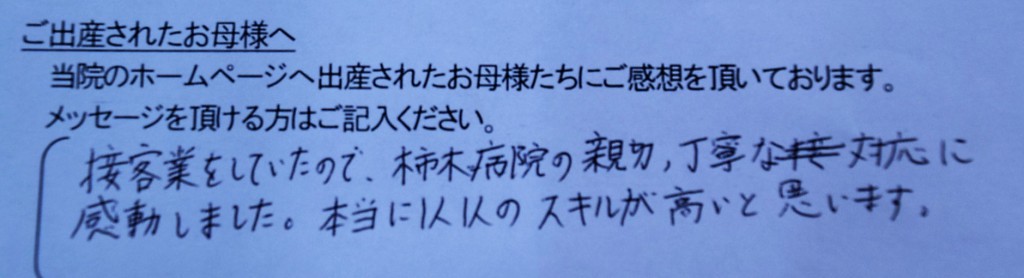 ご出産されたお母様へ
当院のホームページへ出産されたお母様たちにご感想を頂いております。
メッセージを頂ける方はご記入ください。
接客業をしていたので、柿木病院の親切,丁寧な対応に
感動しました。本当に1人1人のスキルが高いと思います。